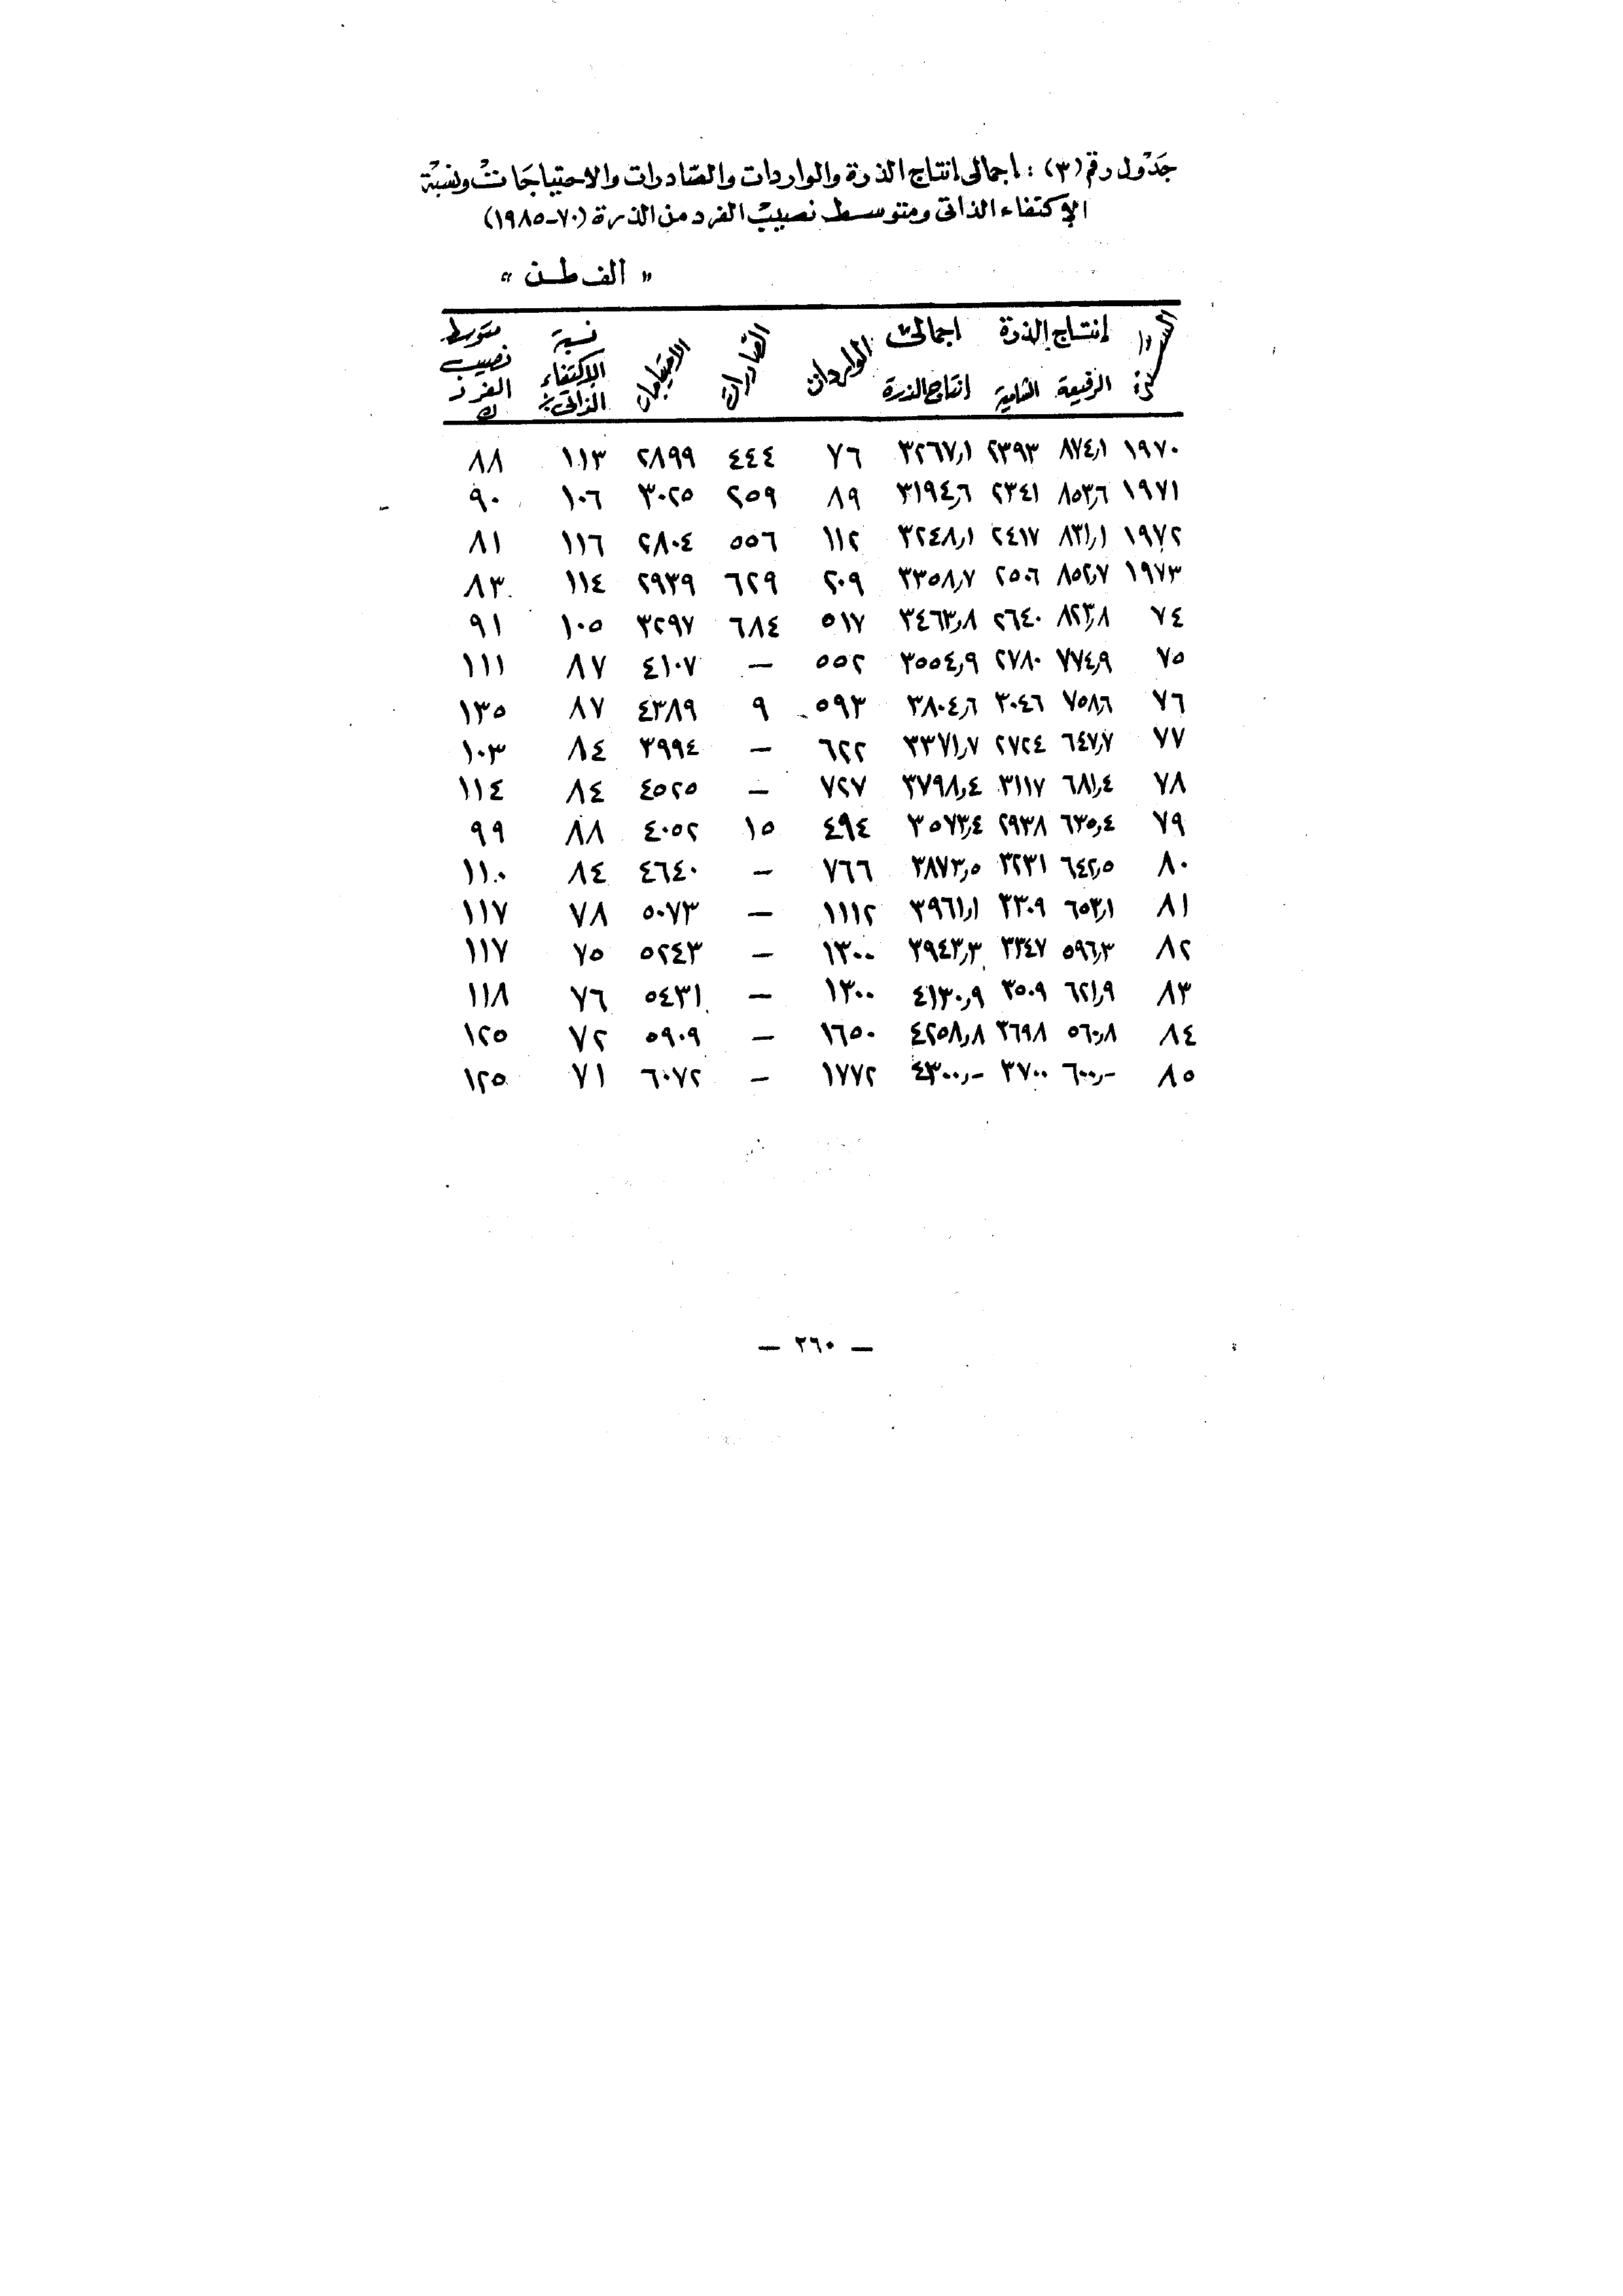 جدول رقم (٣) : اجمالى انتاج الذرة والواردات والصادرات والاحتياجات ونسبة
الإكتفاء الذاتى ومتوسط نصيب الفرد من الذرة (٧٠-١٩٨٥)
" الف طن "
السنوات إنتاج الذرة اجمالى الواردات الصادرات الاحتياجات نسبة متوسط
الإكتفاء نصيب
الرفيعة الشامية انتاج الذرة الذاتى٪ الفرد
ك
١٩٧٠ ٨٧٤,١ ٢٣٩٣ ٣٢٦٧,١ ٧٦ ٤٤٤ ٢٨٩٩ ١١٣ ٨٨
١٩٧١ ٨٥٣,٦ ٢٣٤١ ٣١٩٤,٦ ٨٩ ٢٥٩ ٣٠٢٥ ١٠٦ ٩٠
١٩٧٢ ٨٣١,١ ٢٤١٧ ٣٢٤٨,١ ١١٢ ٥٥٦ ٢٨٠٤ ١١٦ ٨١
١٩٧٣ ٨٥٢,٧ ٢٥٠٦ ٣٣٥٨,٧ ٢٠٩ ٦٢٩ ٢٩�٩ ١١٤ ٨٣
٧٤ ٨٢٣,٨ ٢٦٤٠ ٣٤٦٣,٨ ٥١٧ ٦٨٤ ٣٢٩٧ ١٠٥ ٩١
٧٥ ٧٧٤,٩ ٢٧٨٠ ٣٥٥٤,٩ ٥٥٢ — ٤١٠٧ ٨٧ ١١١
٧٦ ٧٥٨,٦ ٣٠٤٦ ٣٨٠٤,٦ ٥٩٣ ٩ ٤٣٨٩ ٨٧ ١٣٥
٧٧ ٦٤٧,٧ ٢٧٢٤ ٣٣٧١,٧ ٦٢٢ — ٣٩٩٤ ٨٤ ١٠٣
٧٨ ٦٨١,٤ ٣١١٧ ٣٧٩٨,٤ ٧٢٧ — ٤٥٢٥ ٨٤ ١١٤
٧٩ ٦٣٥,٤ ٢٩٣٨ ٣٥٧٣,٤ ٤٩٤ ١٥ ٤٠٥٢ ٨٨ ٩٩
٨٠ ٦٤٢,٥ ٣٢٣١ ٣٨٧٣,٥ ٧٦٦ — ٤٦٤٠ ٨٤ ١١٠
٨١ ٦٥٢,١ ٣٣٠٩ ٣٩٦١,١ ١١١٢ — ٥٠٧٣ ٧٨ ١١٧
٨٢ ٥٩٦,٣ ٣٣٤٧ ٣٩٤٣,٣ ١٣٠٠ — ٥٢٤٣ ٧٥ ١١٧
٨٣ ٦٢١,٩ ٣٥٠٩ ٤١٣٠,٩ ١٣٠٠ — ٥٤٣١ ٧٦ ١١٨
٨٤ ٥٦٠,٨ ٣٦٩٨ ٤٢٥٨,٨ ١٦٥٠ — ٥٩٠٩ ٧٢ ١٢٥
٨٥ ٦٠٠,- ٣٧٠٠ ٤٣٠٠,- ١٧٧٢ — ٦٠٧٢ ٧١ ١٢٥
— ٢٦٠ —